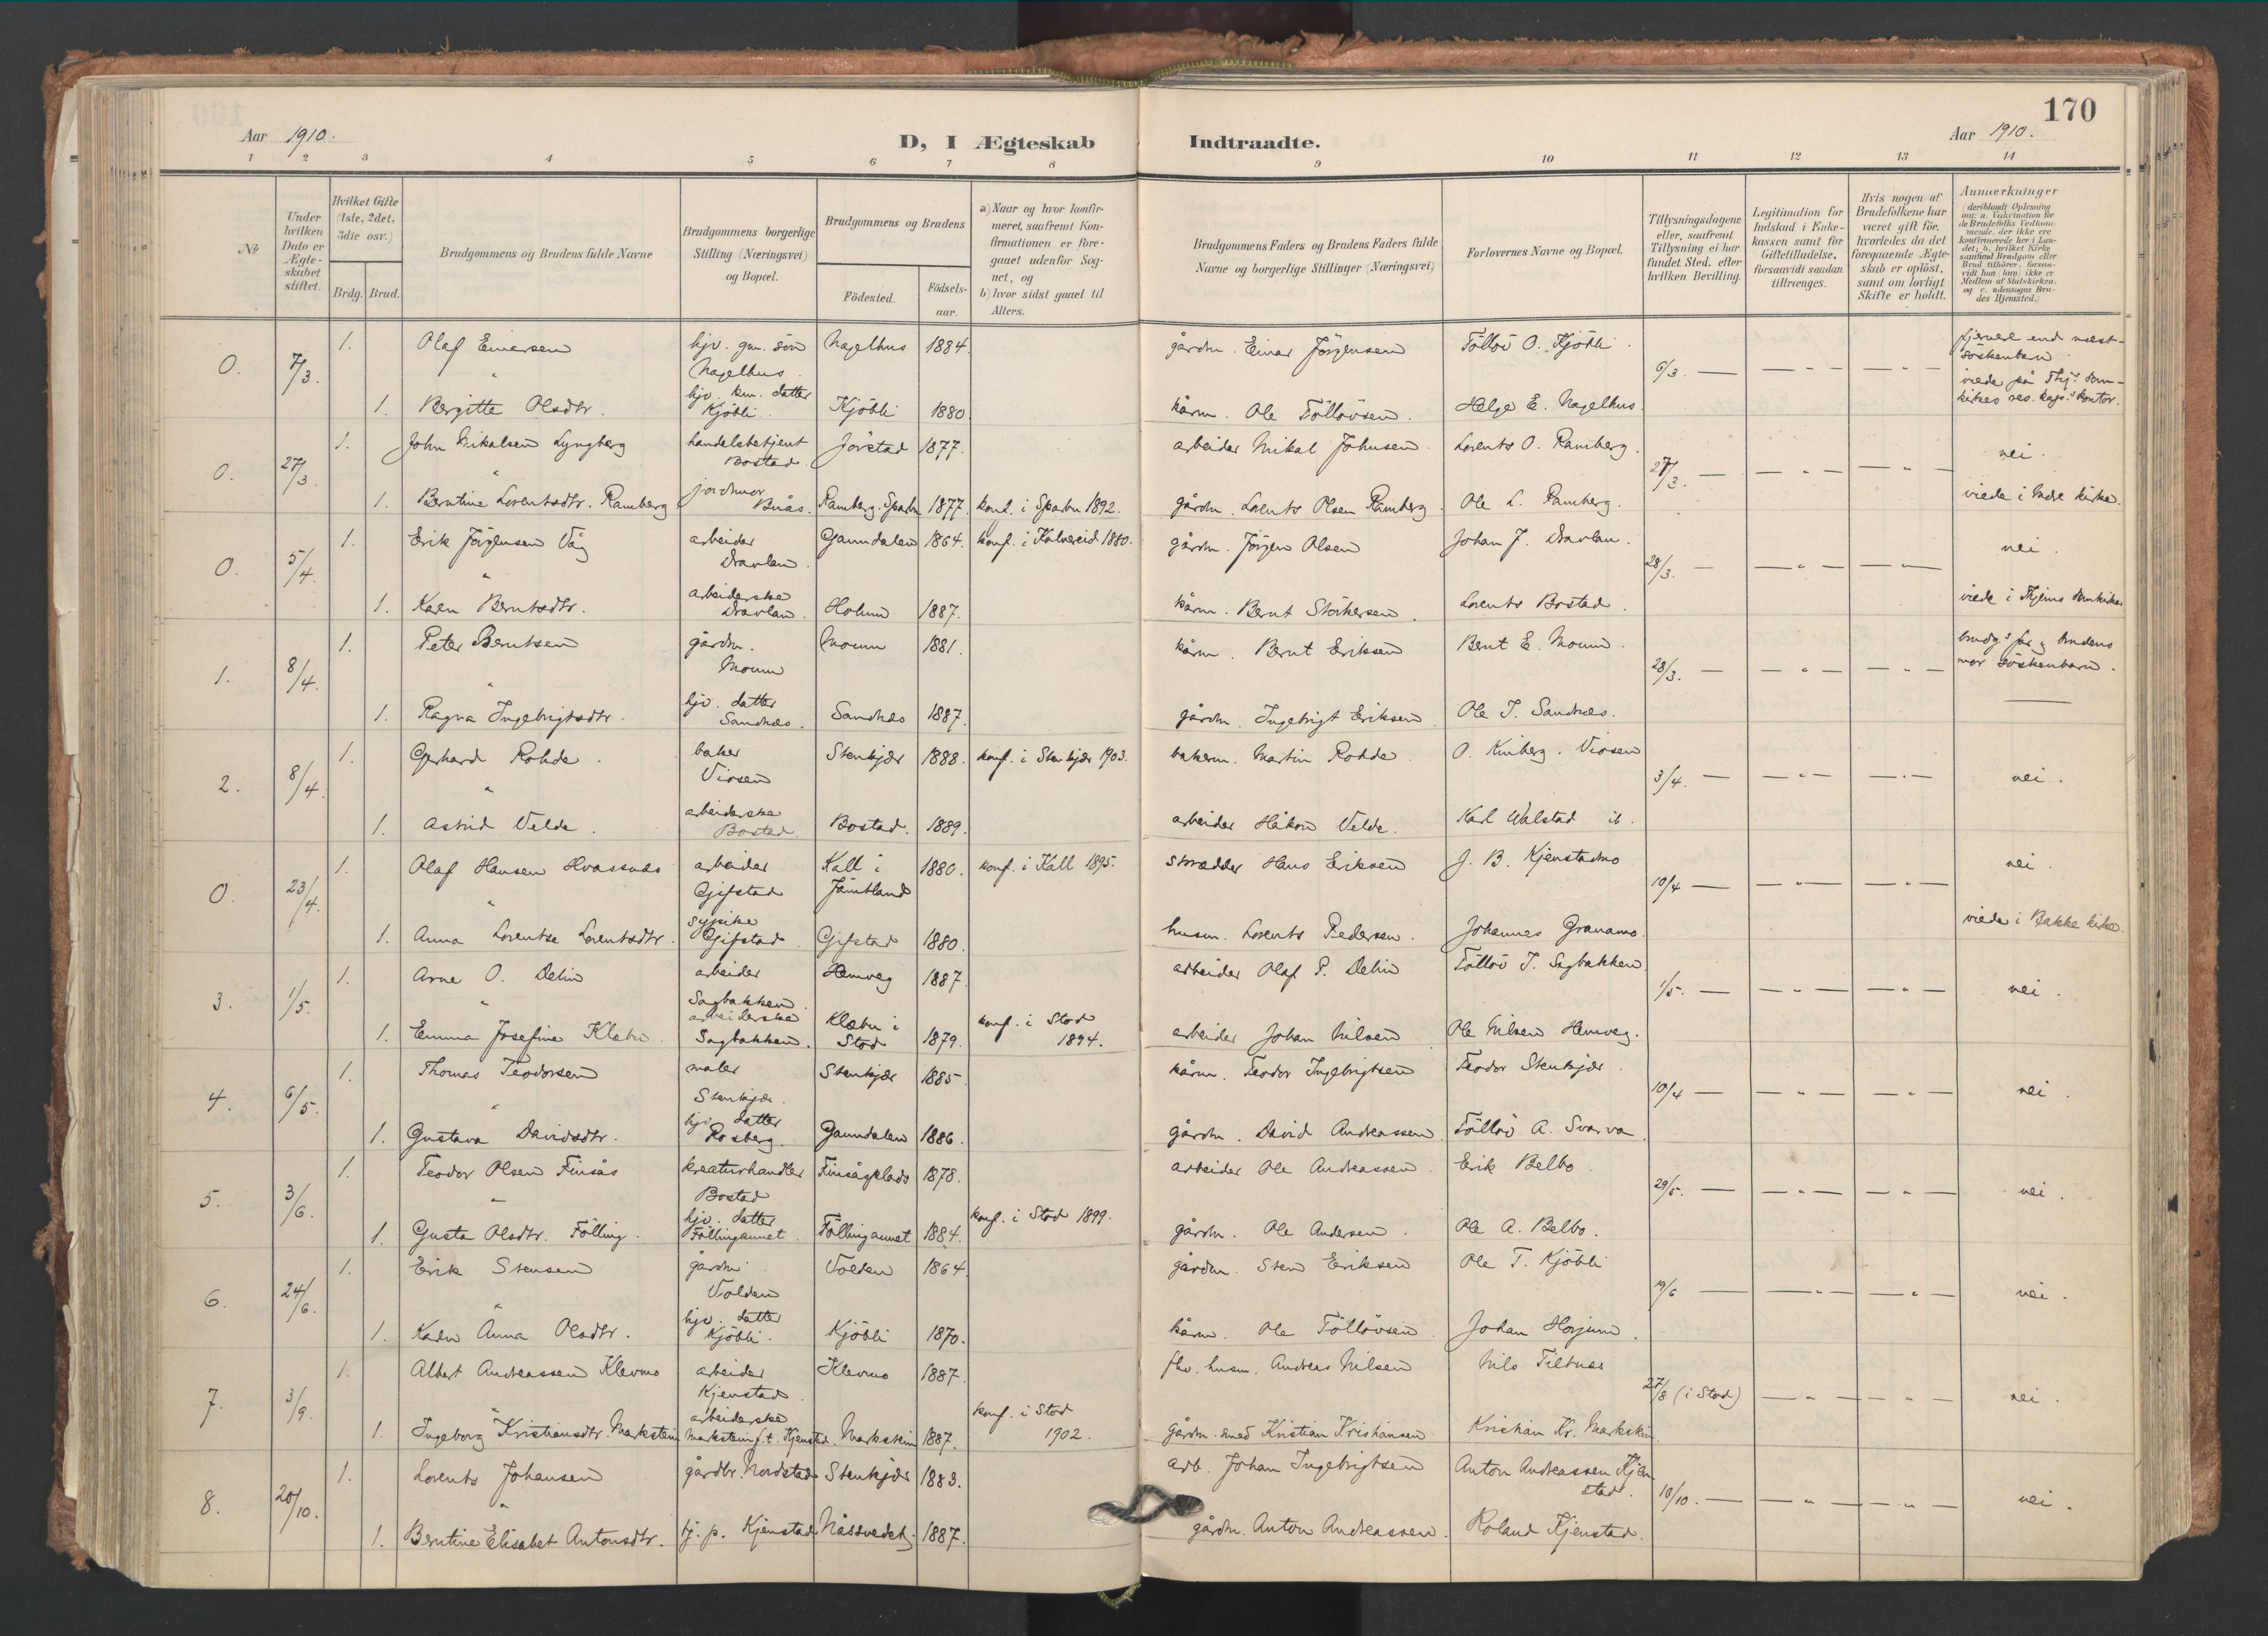 170
Aar 1910.
D, I Ægteskab Indtraadte.
Aar 1910.
1 2 3 4 5 6 7 8 9 10 11 12 13 14
No
Under hvilken Dato er Ægteskabet stiftet.
Hvilket Gifte (1ste, 2det, 3die osv.)
Brdg. Brud.
Brudgommens og Brudens fulde Navne
Brudgommens borgerlige Stilling (Næringsvei) og Bopæl.
Brudgommens og Brudens
Fødested. Fødselsaar.
a) Naar og hvor konfirmeret, saafremt Konfirmationen er foregaaet udenfor Sognet, og
b) hvor sidst gaaet til Alters.
Brudgommens Faders og Brudens Faders fulde Navne og borgerlige Stillinger (Næringsvei)
Forlovernes Navne og Bopæl.
Tillysningsdagene eller, saafremt Tillysning ei har fundet Sted, efter hvilken Bevilling.
Legitimation for Indskud i Enkekassen samt for Giftetilladelse, forsaavidt saadan tiltrænges.
Hvis nogen af Brudefolkene har været gift før, hvorledes da det foregaaende Ægteskab er opløst, samt om lovligt Skifte er holdt.
Anmerkninger
(deriblandt Oplysning om: a. Vakcination for de Brudefolks Vedkommende, der ikke ere konfirmerede her i Landet; b. hvilket Kirkesamfund Brudgom eller Brud tilhører, forsaavidt han (hun) ikke er Medlem af Statskirken, og c. udensogns Brudes Hjemsted.)
0. 7/3. 1. Olaf Einarsen hjv. gm. søn Nagelhus Nagelhus 1884. gårdm. Einar Jörgensen Tölløv O. Kjöbli. 6/3. fjernere end næstsöskenbarn.
1. Bergitte Olsdtr. hjv. km. datter Kjöbli Kjöbli 1880. kårm. Ole Tölløvsen Helge E. Nagelhus.
0. 27/3. 1. John Mikalsen Lyngberg handelsbetjent Bostad. Jörstad 1877. arbeider Mikal Johnsen Lorents O. Ramberg. 27/3. nei.
1. Berntine Lorentsdtr. Ramberg jordmor Buås. Ramberg. Sparbu 1877. konf. i Sparbu 1892. gårdm. Lorents Olsen Ramberg Ole L. Ramberg.
0. 5/4. 1. Erik Jörgensen Våg arbeider Dravlan Gaundalen 1864. konf. i Kolvereid 1880. gårdm. Jörgen Olsen Johan J. Dravlan. 28/3. nei.
1. Karen Berntsdtr. arbeiderske Dravlan. Holum 1887. kårm. Bernt Störkersen. Lorents Bostad.
1. 8/4. 1. Peter Berntsen gårdm. Moum Moum 1881. kårm. Bernt Eriksen Bernt E. Moum. 28/3. brudg.s far og brudens mor söskenbarn.
1. Ragna Ingebrigtsdtr. hjv. datter Sandnæs. Sandnæs 1887. gårdm. Ingebrigt Eriksen Ole I. Sandnæs.
2. 8/4. 1. Gerhard Rohde. baker Viosen Stenkjær 1888. konf. i Stenkjær 1903. bakerm. Martin Rohde O. Kinberg. Viosen 3/4. nei.
1. Astrid Velde. arbeiderske Bostad. Bostad. 1889. arbeider Håkon Velde. Karl Walstad ib.
0. 23/4. 1. Olaf Hansen Hvassnæs arbeider Gifstad Kall i Jämtland 1880. konf. i Kall 1895. skrædder Hans Eriksen J. B. Kjenstadmo 10/4 nei.
1. Anna Lorentse Lorentsdtr. sypike Gifstad. Gifstad 1880. husm. Lorents Pedersen. Johannes Granamo. viede i Bakke kirke.
3. 1/5. 1. Arne O. Delin arbeider Sagbakken. Hemveg 1887. arbeider Olaf P. Delin Tölløv I. Sagbakken. 1/5. nei.
1. Emma Josefine Klæbu. arbeiderske Sagbakken. Klæbu i Stod 1879. konf. i Stod 1894. arbeider Johan Nilsen Ole Nilsen Hemveg.
4. 6/5. 1. Thomas Teodorsen maler Stenkjær. Stenkjær 1885. kårm. Teodor Ingebrigtsen Teodor Stenkjær. 10/4 nei.
1. Gustava Davidsdtr. hjv. datter Rosberg. Gaundalen 1886. gårdm. David Andreassen Tölløv A. Svarva
5. 3/6. 1. Teodor Olsen Finsås kreaturhandler Bostad Finsåsplads 1878. arbeider Ole Andreassen. Erik Belbo. 29/5. nei.
1. Gusta Olsdtr. Fölling. hjv. datter Föllingaunet. Föllingaunet 1884. konf. i Stod 1899. gårdm. Ole Andersen. Ole A. Belbo.
6. 24/6. 1. Erik Stensen gårdm. Volden Volden 1864. gårdm. Sten Eriksen Ole T. Kjöbli 19/6 nei.
1. Karen Anna Olsdtr. hjv. datter Kjöbli. Kjöbli 1870. kårm. Ole Tölløvsen Johan Horjum.
7. 3/9. 1. Albert Andreassen Klevmo arbeider Kjenstad Klevmo 1887. fhv. husm. Andreas Nilsen Nils Tiltnes 27/8 (i Stod) nei.
1. Ingeborg Kristiansdtr. Markstein arbeiderske Markstein f.t. Kjenstad. Markstein 1887. konf. i Stod 1902. gårdm. smed Kristian Kristiansen Kristian Kr. Markstein.
8. 20/10. 1. Lorents Johansen gårdbr. Nordstad Stenkjær 1883. arb. Johan Ingebrigtsen Anton Andreassen Kjenstad. 10/10. nei.
1. Berntine Elisabet Antonsdtr. tj. p. Kjenstad Nåssvedet. 1887. gårdm. Anton Andreassen. Roland Kjenstad.